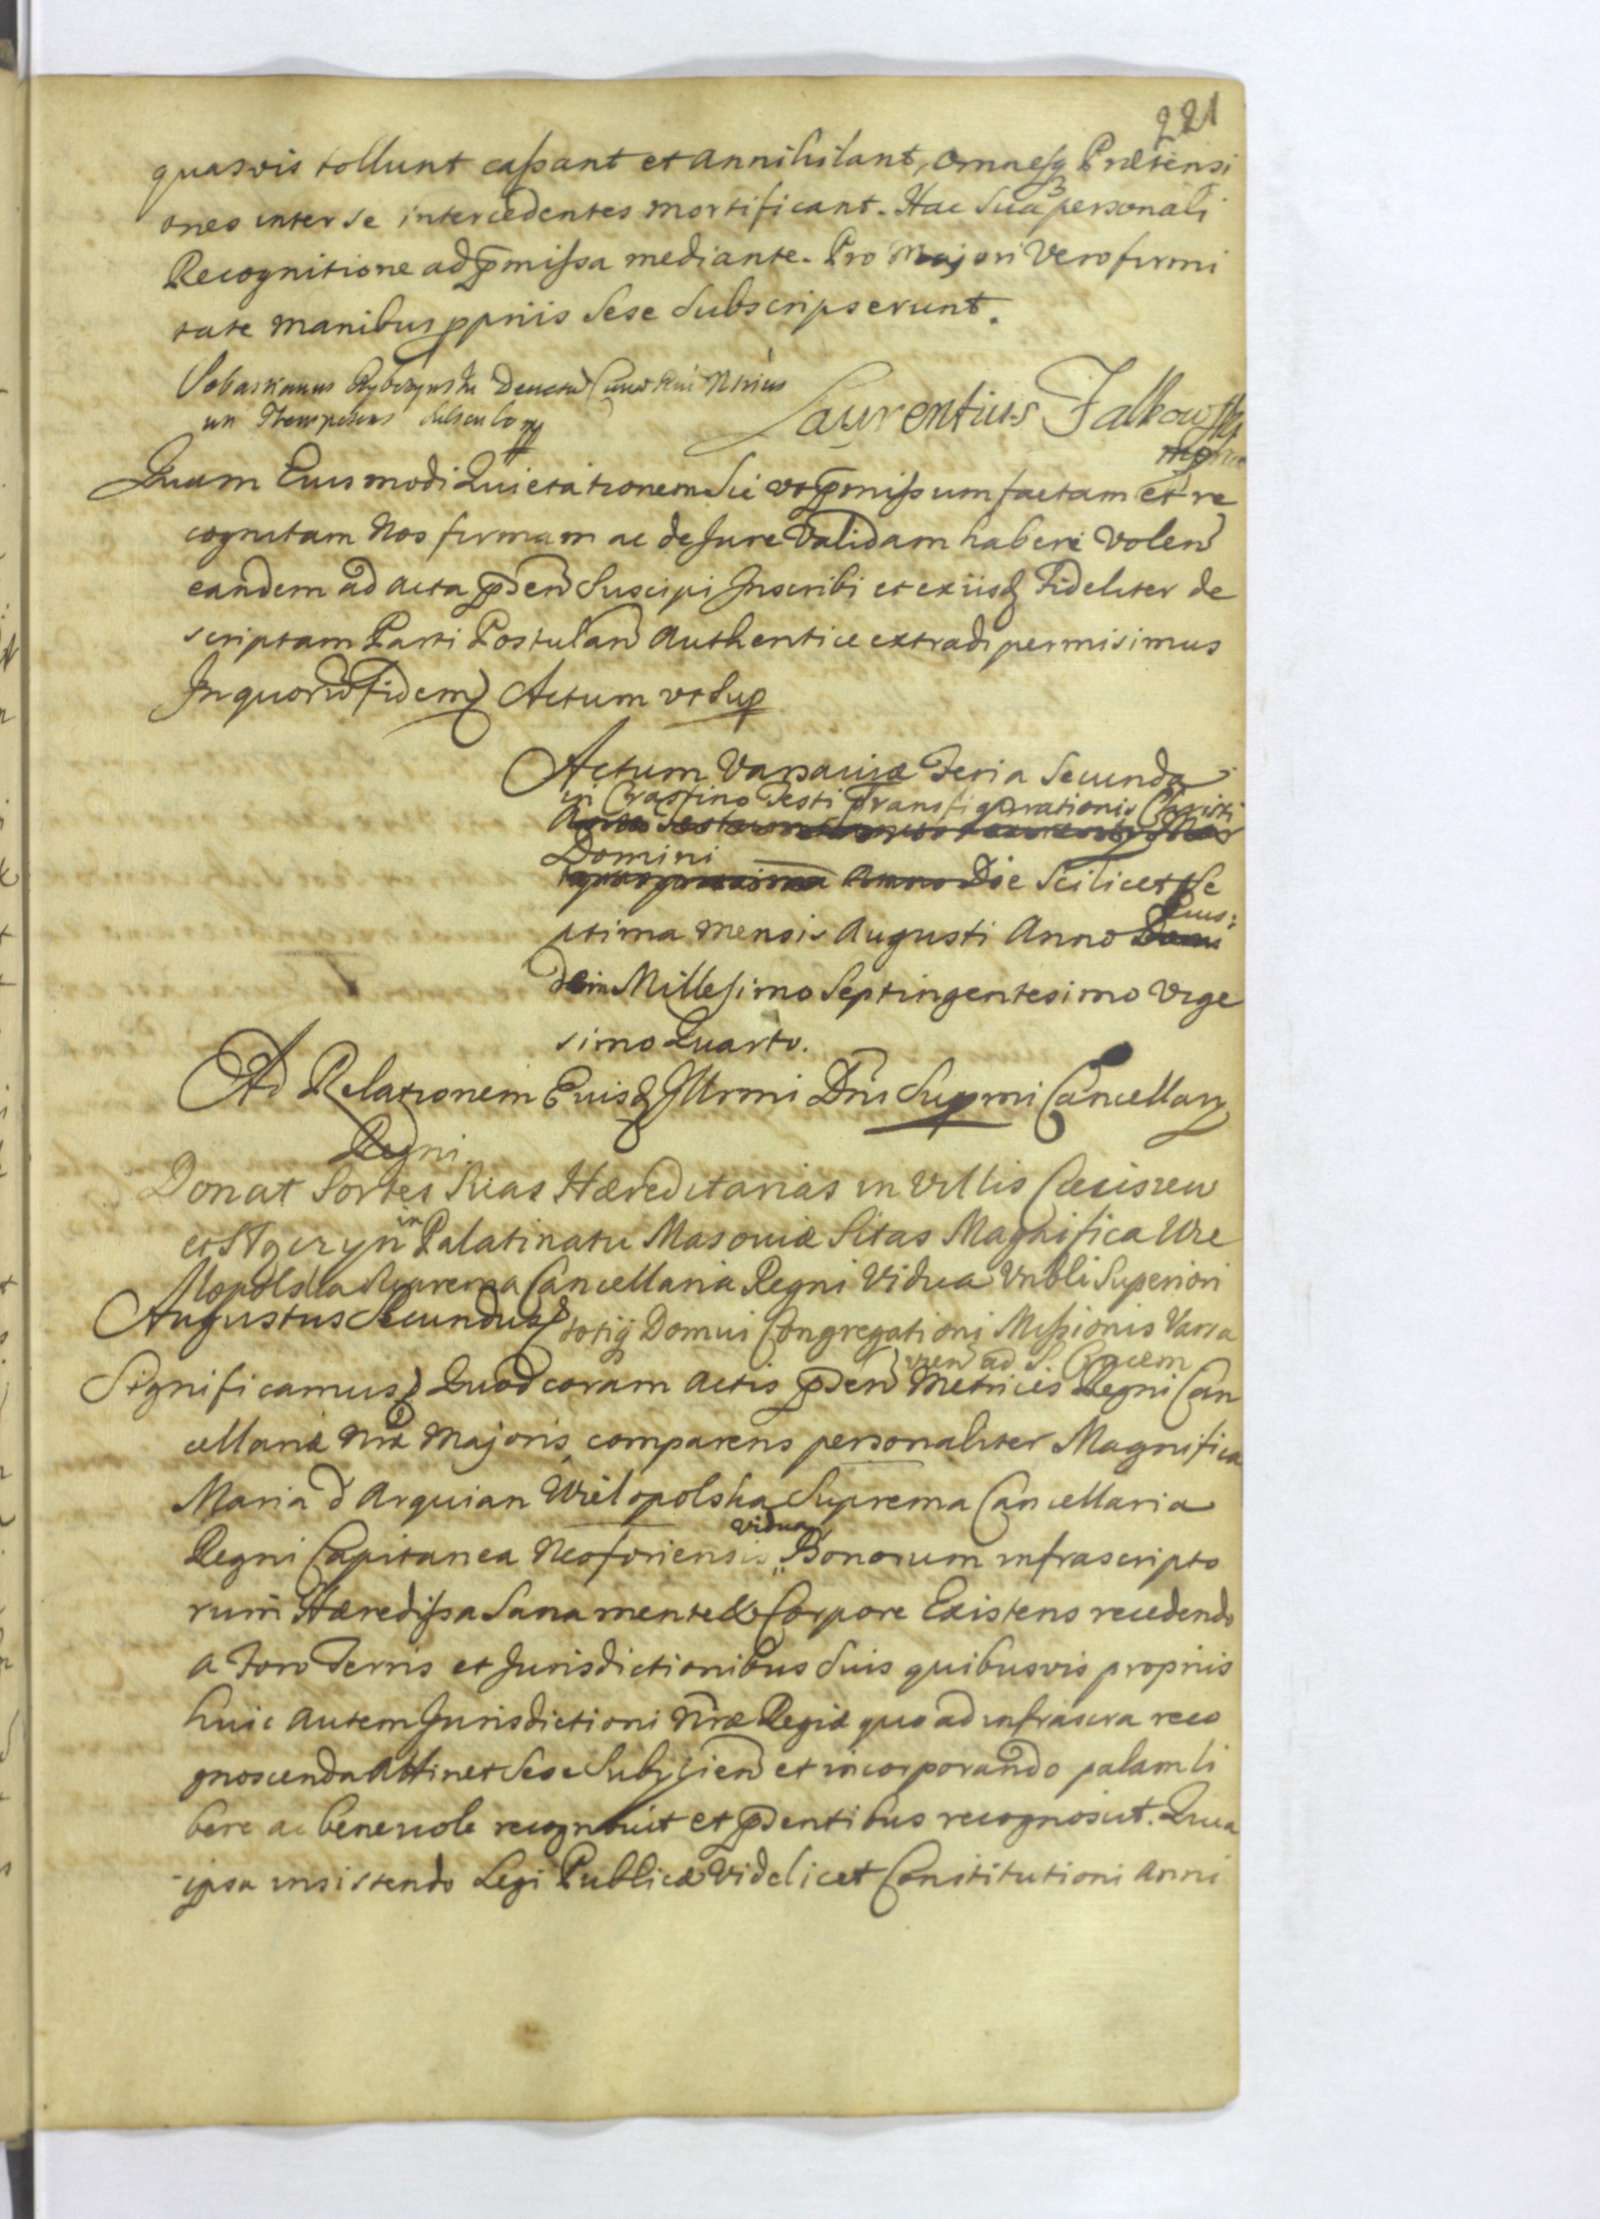 221
quasvis tollunt cassant et annihilant, omnesq Prætensi
ones inter se intercedentes mortificant. Hac sua personali
Recognitione ad pmissa mediante. Pro Majori Vero firmi
tate manibus ppriis sese subscripserunt.
Laurentius Falkowski
mp
Quam Eiusmodi Quietationem sic vt pmissum factam et re
cognitam Nos firmam ac de Jure Validam haberi volen
eandem ad acta pden Suscipi Inscribi et ex iisd Fideliter de
scriptam Parti Postulan Authentice extradi permisimus
In quorum Fidem Actum vt Sup
Actum Varsaviæ Feria Secunda
in Crastino Festi Transfigurationis Christi
Domini
Die Scilicet Se
ptima mensis Augusti Anno Eius:
dem Millesimo Septingentesimo Vige
simo Quarto.
Ad Relationem Eiusd Illrmi Dni Supmi Cancellarij
Regni
Donat Sortes Suas Hæreditarias in Villis
et in Palatinatu Masoviæ Sitas Magnifica Wie
lopolska Suprema Cancellaria Regni Vidua Vnbli Superiori
Augustus Secundus totiq Domui Congregationi Missionis Varsa
vien ad S. Crucem
Significamus Quod coram Actis pden Metrices Regni Can
cellariæ Nræ Majoris comparens personaliter Magnifica
Maria d Arquian Wielopolska Suprema Cancellaria
Regni Capitanea Neoforiensis Vidua, Bonorum infrascripto
rum Hæredissa Sana mente & Corpore Existens recedendo
a Foro Terris et Jurisdictionibus Suis quibusvis propriis
huic autem Jurisdictioni Nræ Regiæ quo ad infrascra reco
gnoscenda attinet Sese Subijcien et incorporando palam li
bere ac benevole recognovit et pdentibus recognoscit. Quia
ipsa insistendo Legi Publicæ Videlicet Constitutioni Anni